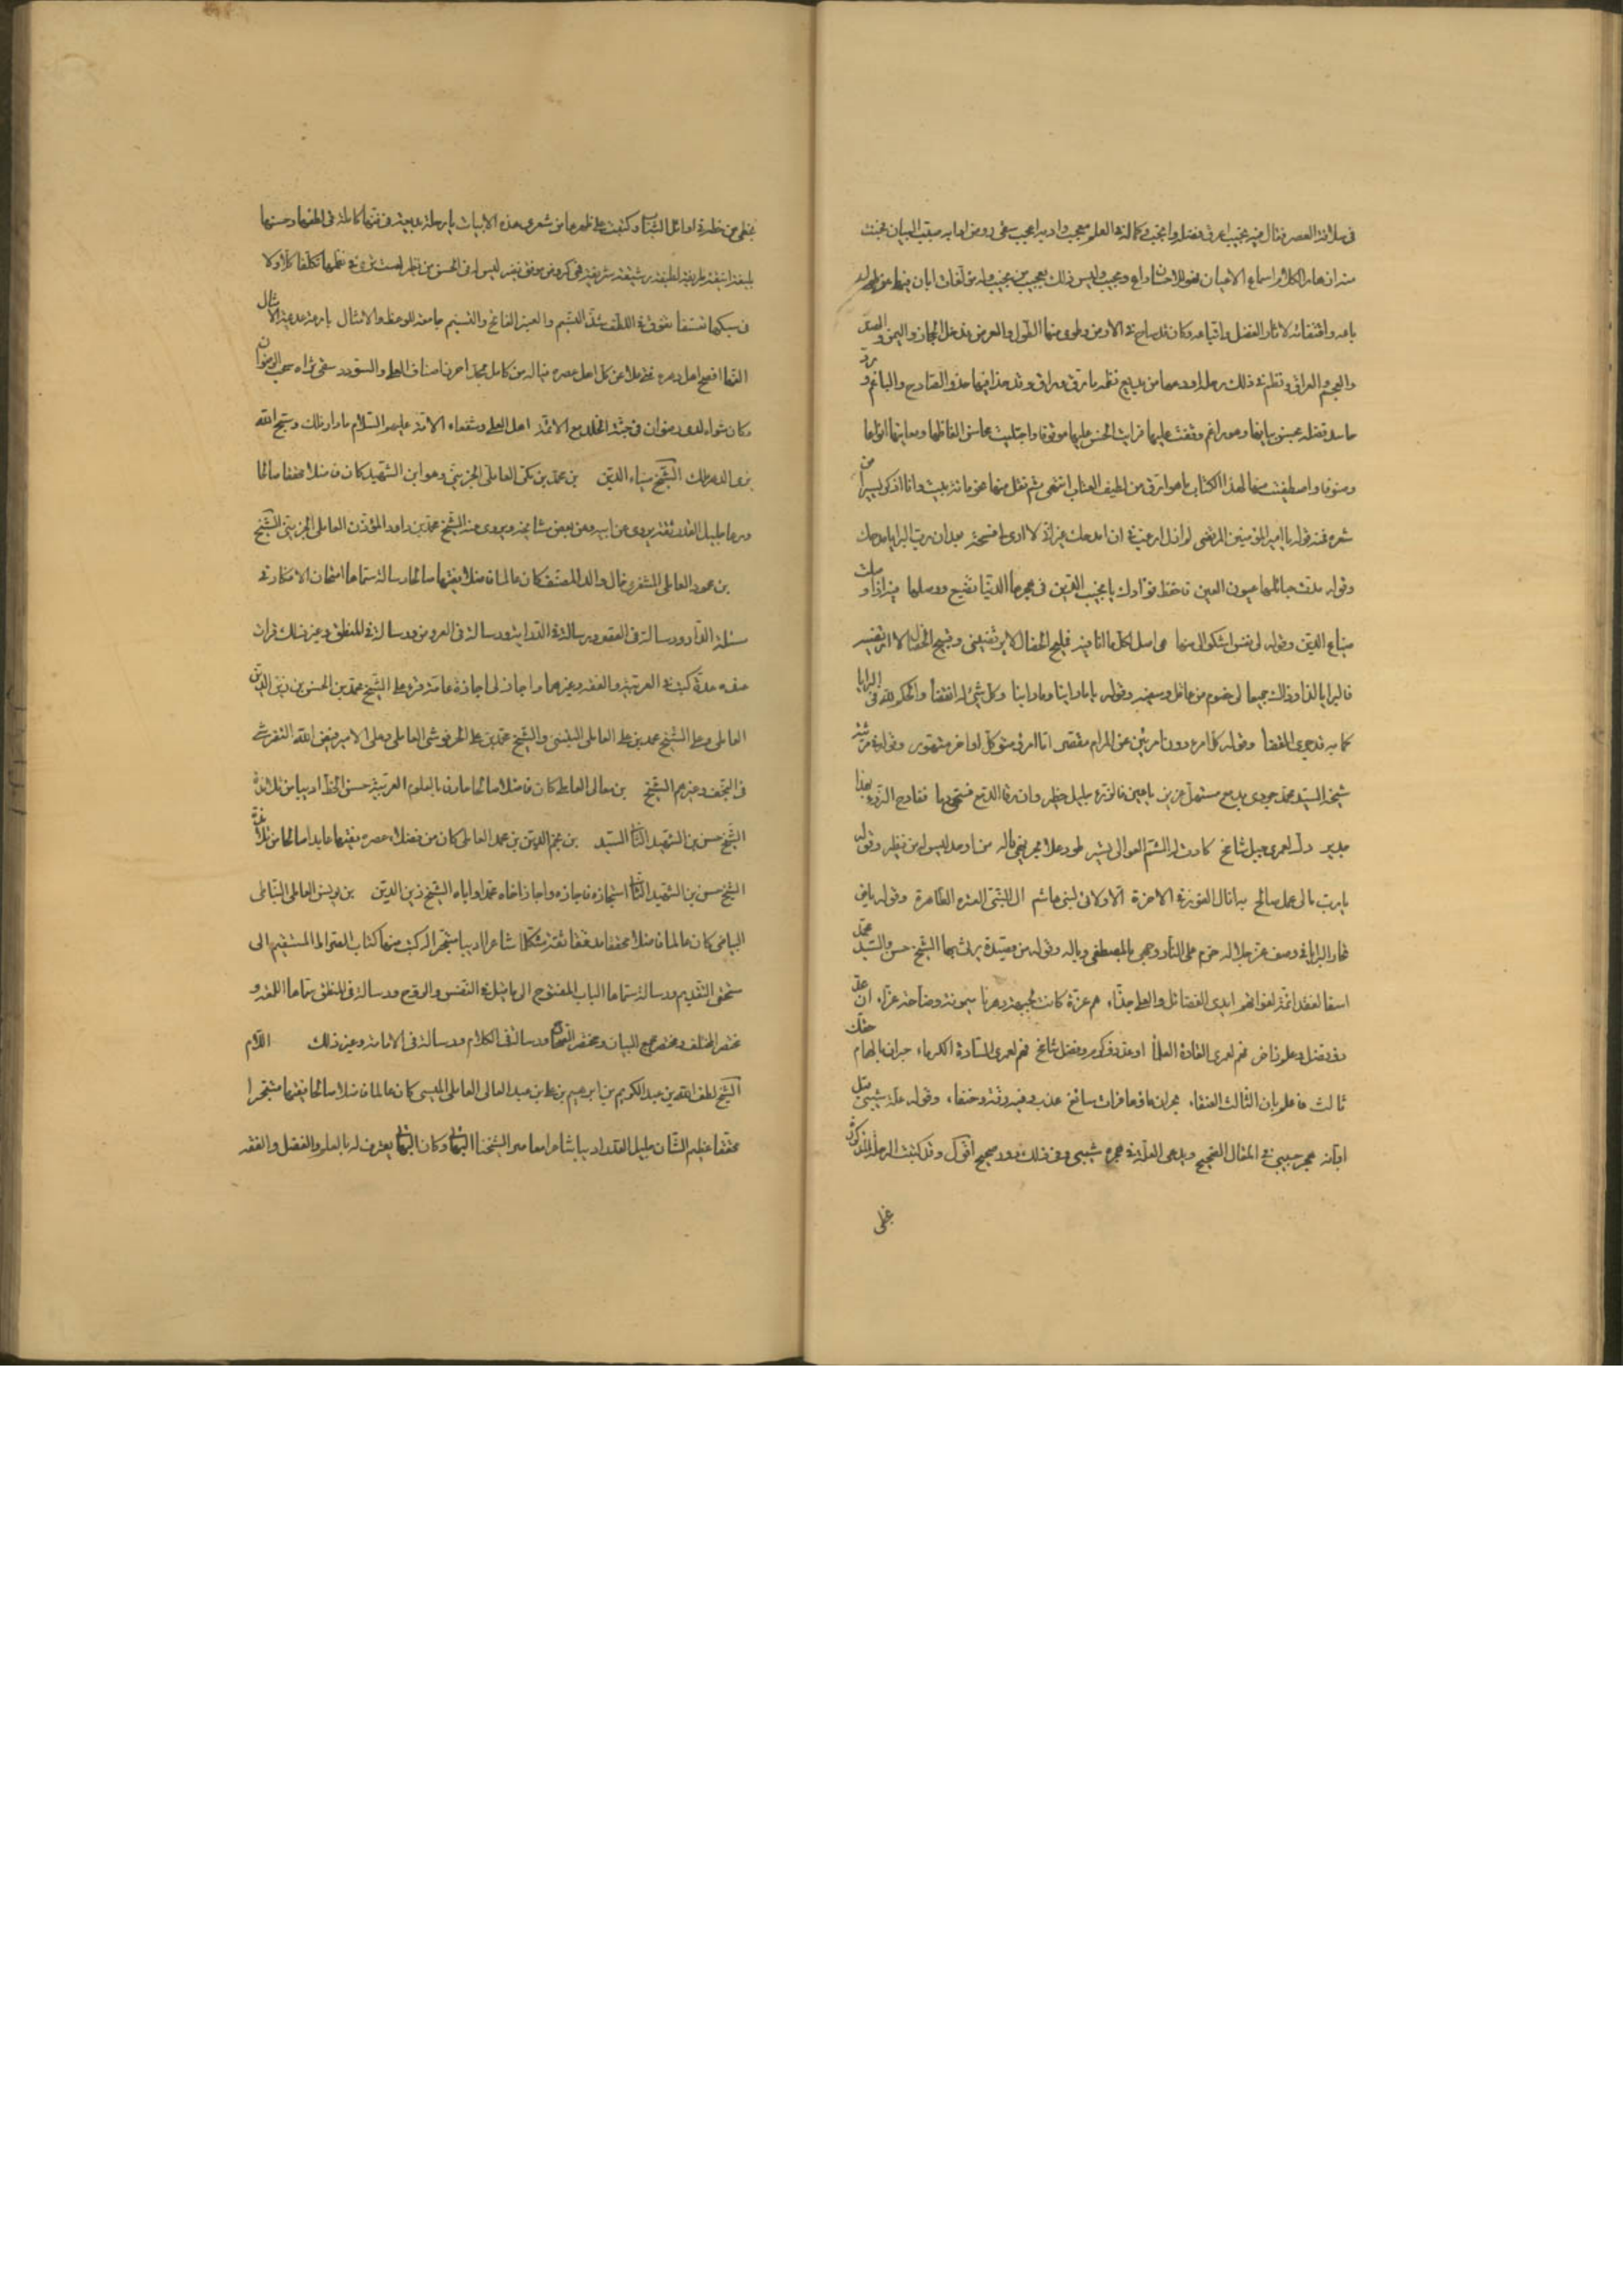 في سلافة العصر فقال فيه نجيب اعرق فضله وانجب وكماله في العلم معجب وادبه اعجب سقى روض ادابه صيب البيان فجنت
منه ازهار الكلام اسماع الاعيان فهو للاحسان داع ومجيب وليس ذلك بعجيب من نجيب وله مؤلفات ابان فيها عن طول
باعه واقتفائه لاثار الفضل واتباعه وكان قد ساح في الارض وطوى منها الطول والعرض فدخل الحجاز واليمن والهند
والعجم والعراق ونظم في ذلك رحلة اودعها من بديع نظمه ما رق وراق وقد حذا فيها حذو الصادح والباغم ورد
حاسد فضله بحسن بيانها وهو راغم وقفت عليها فرايت الحسن عليها موقوفا واجتليت محاسن الفاظها ومعانيها انواعا
وصنوفا واصطفيت منها لهذا الكتاب ما هو ارق من لطيف العتاب انتهى ثم نقل منها نحو مائة بيت وانا اذكر يسيرا من
شعره فمنه قوله يا امير المؤمنين المرتضى لم ازل ارغب في ان امدحك غير اني لا ارى لي فسحة بعد ان رب البرايا مدحك
وقوله مدت حبائلها عيون العين فاحفظ فؤادك يا نجيب الدين في هجرها الدنيا تضيع ووصلها فيه اذا وصلت
ضياع الدين وقوله لي نفس اشكو الى الله منها هي اصل لكل ما انا فيه فمليح الخصال لا يرتضيني وقبيح الخصال لا ارتضيه
فالبرايا لذا وذاك جميعا لي خصوم من عاقل وسفيه وقوله
كما به قد جرى القضا وقوله كل امرء دون امرئين عن المرام مقصر
شيخه السيد محمد جودي بدمع مستهل غزير يا عين فالرزء جليل خطير
جدير دك لعمري جبل شامخ كادت له الشم العوالي تسير طود علا
يا رب مالي عمل صالح به انال الفوز في الاخرة الا ولائي لبني هاشم ال النبي العترة الطاهرة وقوله
حار البرايا في وصف عز جلاله على النار وهي بالمصطفى وباله وقوله من قصيدة يرثي بها الشيخ حسن والسيد محمد
اسفا لفقد ائمة لفواتهم ايدي الفضائل والعلى جذاء هم عزة كانت لجبهة دهرنا ميمونة وضاحة غراء ان عد
ذو فضل وعلم زاخر فهم لعمري القادة العلماء او عد ذو كرم وفضل شامخ فهم لعمري السادة الكرماء حبران ما لهما
ثالث فاعلم بان الثالث العنقاء بحران ماؤهما فرات سائغ عذب وفيه رقة وصفاء وقوله علة شيبي قبل
ابانه هجر حبيبي في المقال الصحيح ويدعي العلة في هجره شيبي وفي ذلك دور صريح اقول وقد كتبت الرحلة المذكورة
بخطي
بخطي من خطه في اوائل الشباب وكتبت على ظهرها من شعري هذه الابيات يا رحلة بديعة في فنها كاملة في لطفها وحسنها
بليغة انيقة ظريفة لطيفة رشيقة شريفة هي كروض مونق نضير ليس له في الحسن من نظير لست ترى في نظمها تكلفا كلا ولا
في سبكها تعسفا تفوق في اللطف شذا النسيم والعنبر الفائح والنسيم جامعة للوعظ والامثال
الفها افصح اهل دهره علا عن كل اهل عصره فياله من كامل ممجد احرز اصناف العلى والسودد سقى ثراه سحب الرضوان
وكان مثواه لدى رضوان في جنة الخلد مع الائمة اهل العلى وشفعاء الامة عليهم السلام ما دار فلك وسبح الله
الشيخ ضياء الدين بن محمد بن مكي العاملي الجزيني وهو ابن الشهيد كان فاضلا محققا صالحا
ورعا جليل القدر ثقة يروي عن ابيه وعن بعض مشايخه ويروي عنه الشيخ محمد بن داود المؤذن العاملي الجزيني الشيخ
بن محمود العاملي المشغري خال والد المصنف كان عالما فاضلا فقيها صالحا له رسالة سماها امتحان الافكار في
مسئلة الدار ورسالة في العقود ورسالة في الدراية ورسالة في العروض ورسالة في المنطق وغير ذلك قرات
عنده جملة كتب في العربية والفقه وغيرهما واجازني اجازة عامة قرء على الشيخ محمد بن الحسن بن زين الدين
العاملي وعلى الشيخ محمد بن علي العاملي التبنيني والشيخ محمد بن علي الحرفوشي العاملي وعلى الامير فيض الله التفرشي
في النجف وغيرهم الشيخ بن معالي العاملي كان فاضلا صالحا عارفا بالعلوم العربية حسن الخط اديبا من تلامذة
الشيخ حسن بن الشهيد الثاني السيد بن نجم الدين بن محمد العاملي كان من فضلاء عصره فقيها عابدا صالحا من تلامذة
الشيخ حسن بن الشهيد الثاني استجازه فاجازه واجاز اخاه محمدا واباه الشيخ زين الدين بن يونس العاملي النباطي
البياضي كان عالما فاضلا محققا مدققا ثقة متكلما شاعرا اديبا متبحرا له كتب منها كتاب الصراط المستقيم الى
مستحقي التقديم ورسالة سماها الباب المفتوح الى ما قيل في النفس والروح ورسالة في المنطق سماها اللمعة و
مختصر المختلف ومختصر مجمع البيان ومختصر الصحاح ورسالة في الكلام ورسالة في الامامة وغير ذلك اللام
الشيخ لطف الله بن عبد الكريم بن ابرهيم بن علي بن عبد العالي العاملي الميسي كان عالما فاضلا صالحا فقيها متبحرا
محققا عظيم الشان جليل القدر اديبا شاعرا معاصرا لشيخنا البهائي وكان البهائي يعترف له بالعلم والفضل والفقه